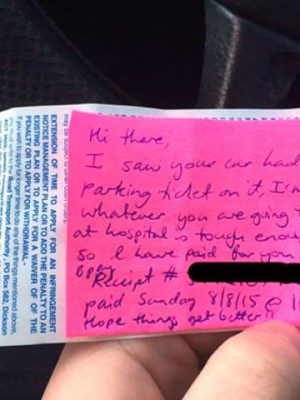 Hi there,
I saw your car had
parking ticket on it, I'm
whatever you are going
at hospital is tough enou
so I have paid for you
Receipt #
paid Sunday 8/8/15 @ 1
Hope things get better!!
EXTENSION OF TIME TO APPLY FOR AN INFRINGEMENT
NOTICE MANAGEMENT PLAN OR TO ADD THE PENALTY TO AN
EXISTING PLAN OR TO APPLY FOR A WAIVER OF OF THE
PENALTY OR TO APPLY FOR WITHDRAWAL-
If you wish to apply for longer time to do any of the things mentioned above,
you must write to the Road Transport Authority, PO Box 582, Dickson